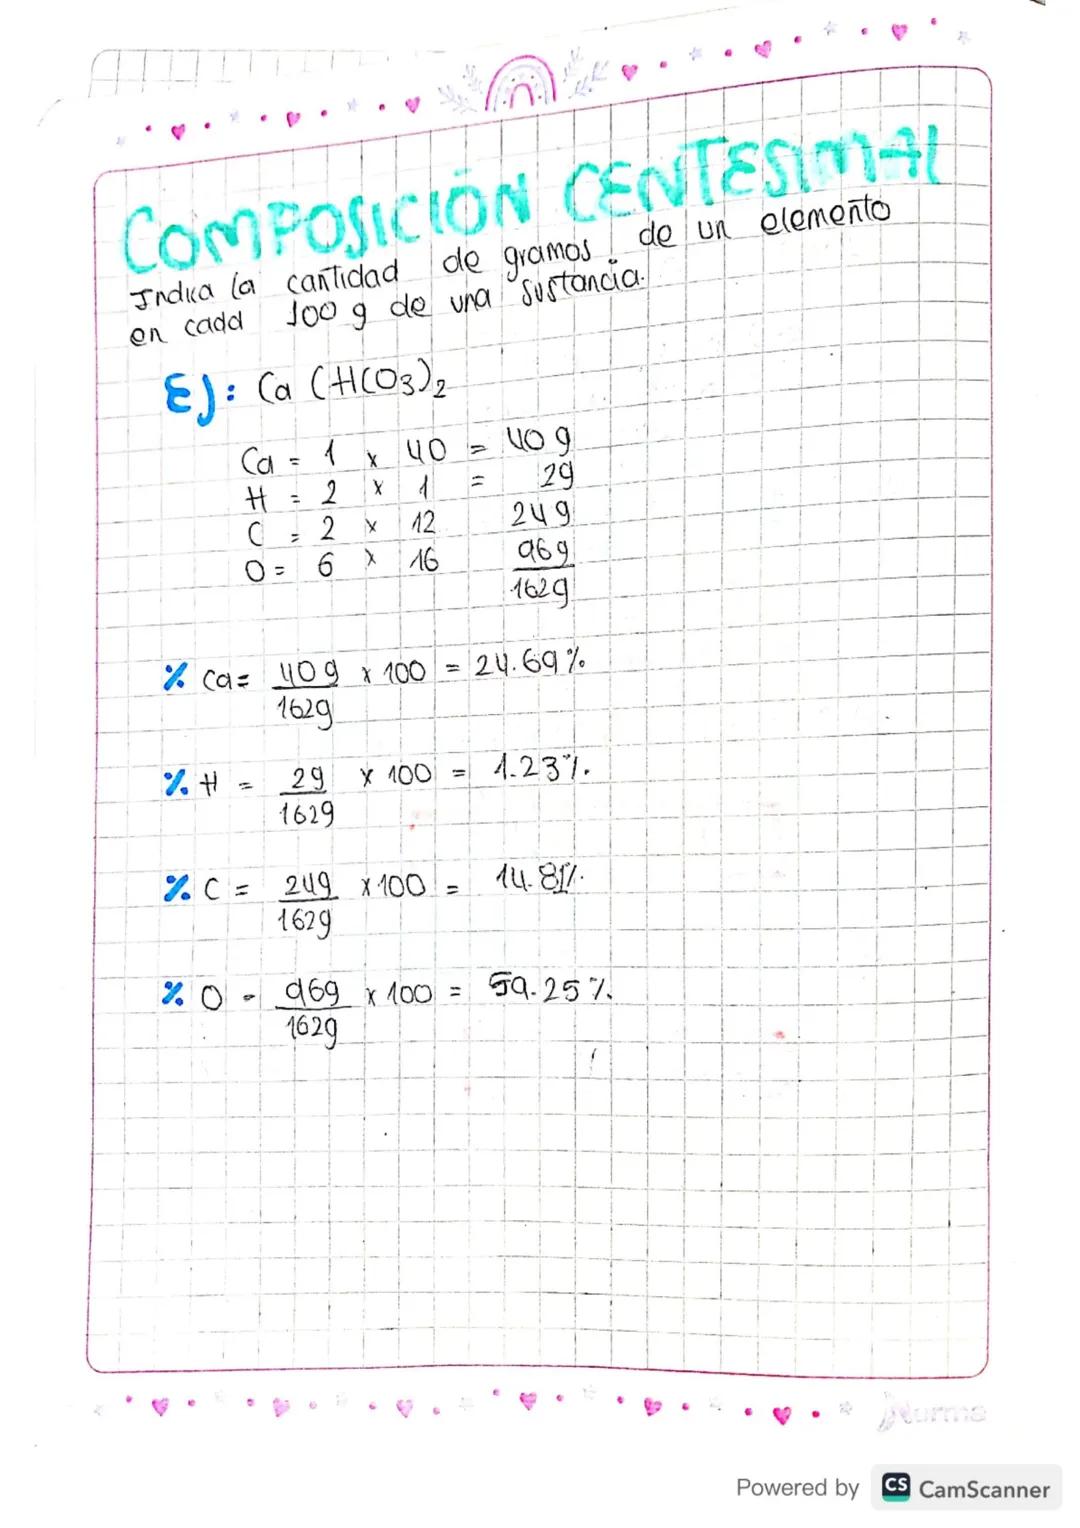 COMPOSICIÓN CENTESIMAL
Indica la cantidad de gramos de un elemento
en cada 100 g de una sustancia.
EJ: Ca (HCO3)2
Ca = 1 x 40 = 40 g
H = 2 x 1 = 2g
C = 2 x 12 24g
O = 6 x 16 96g
162g
% Ca = 40g x 100 = 24.69%
162g
% H = 2g x 100 = 1.23%
162g
% C = 24g x 100 = 14.81%
162g
% O - 96g x 100 = 59.25%
162g
Norma
Powered by CS CamScanner